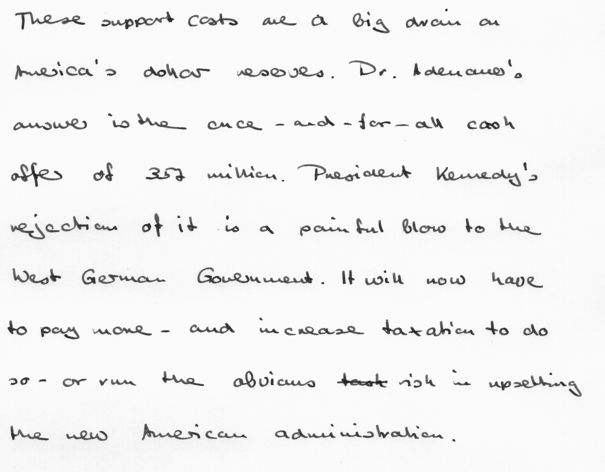 These support costs are a big drain on
America's dollar reserves. Dr. Adenauer's
answer is the once-and-for-all cash
offer of 357 million. President Kennedy's
rejection of it is a painful blow to the
West German Government. It will now have
to pay more - and increase taxation to do
so - or run the obvious task risk in upsetting
the new American administration.